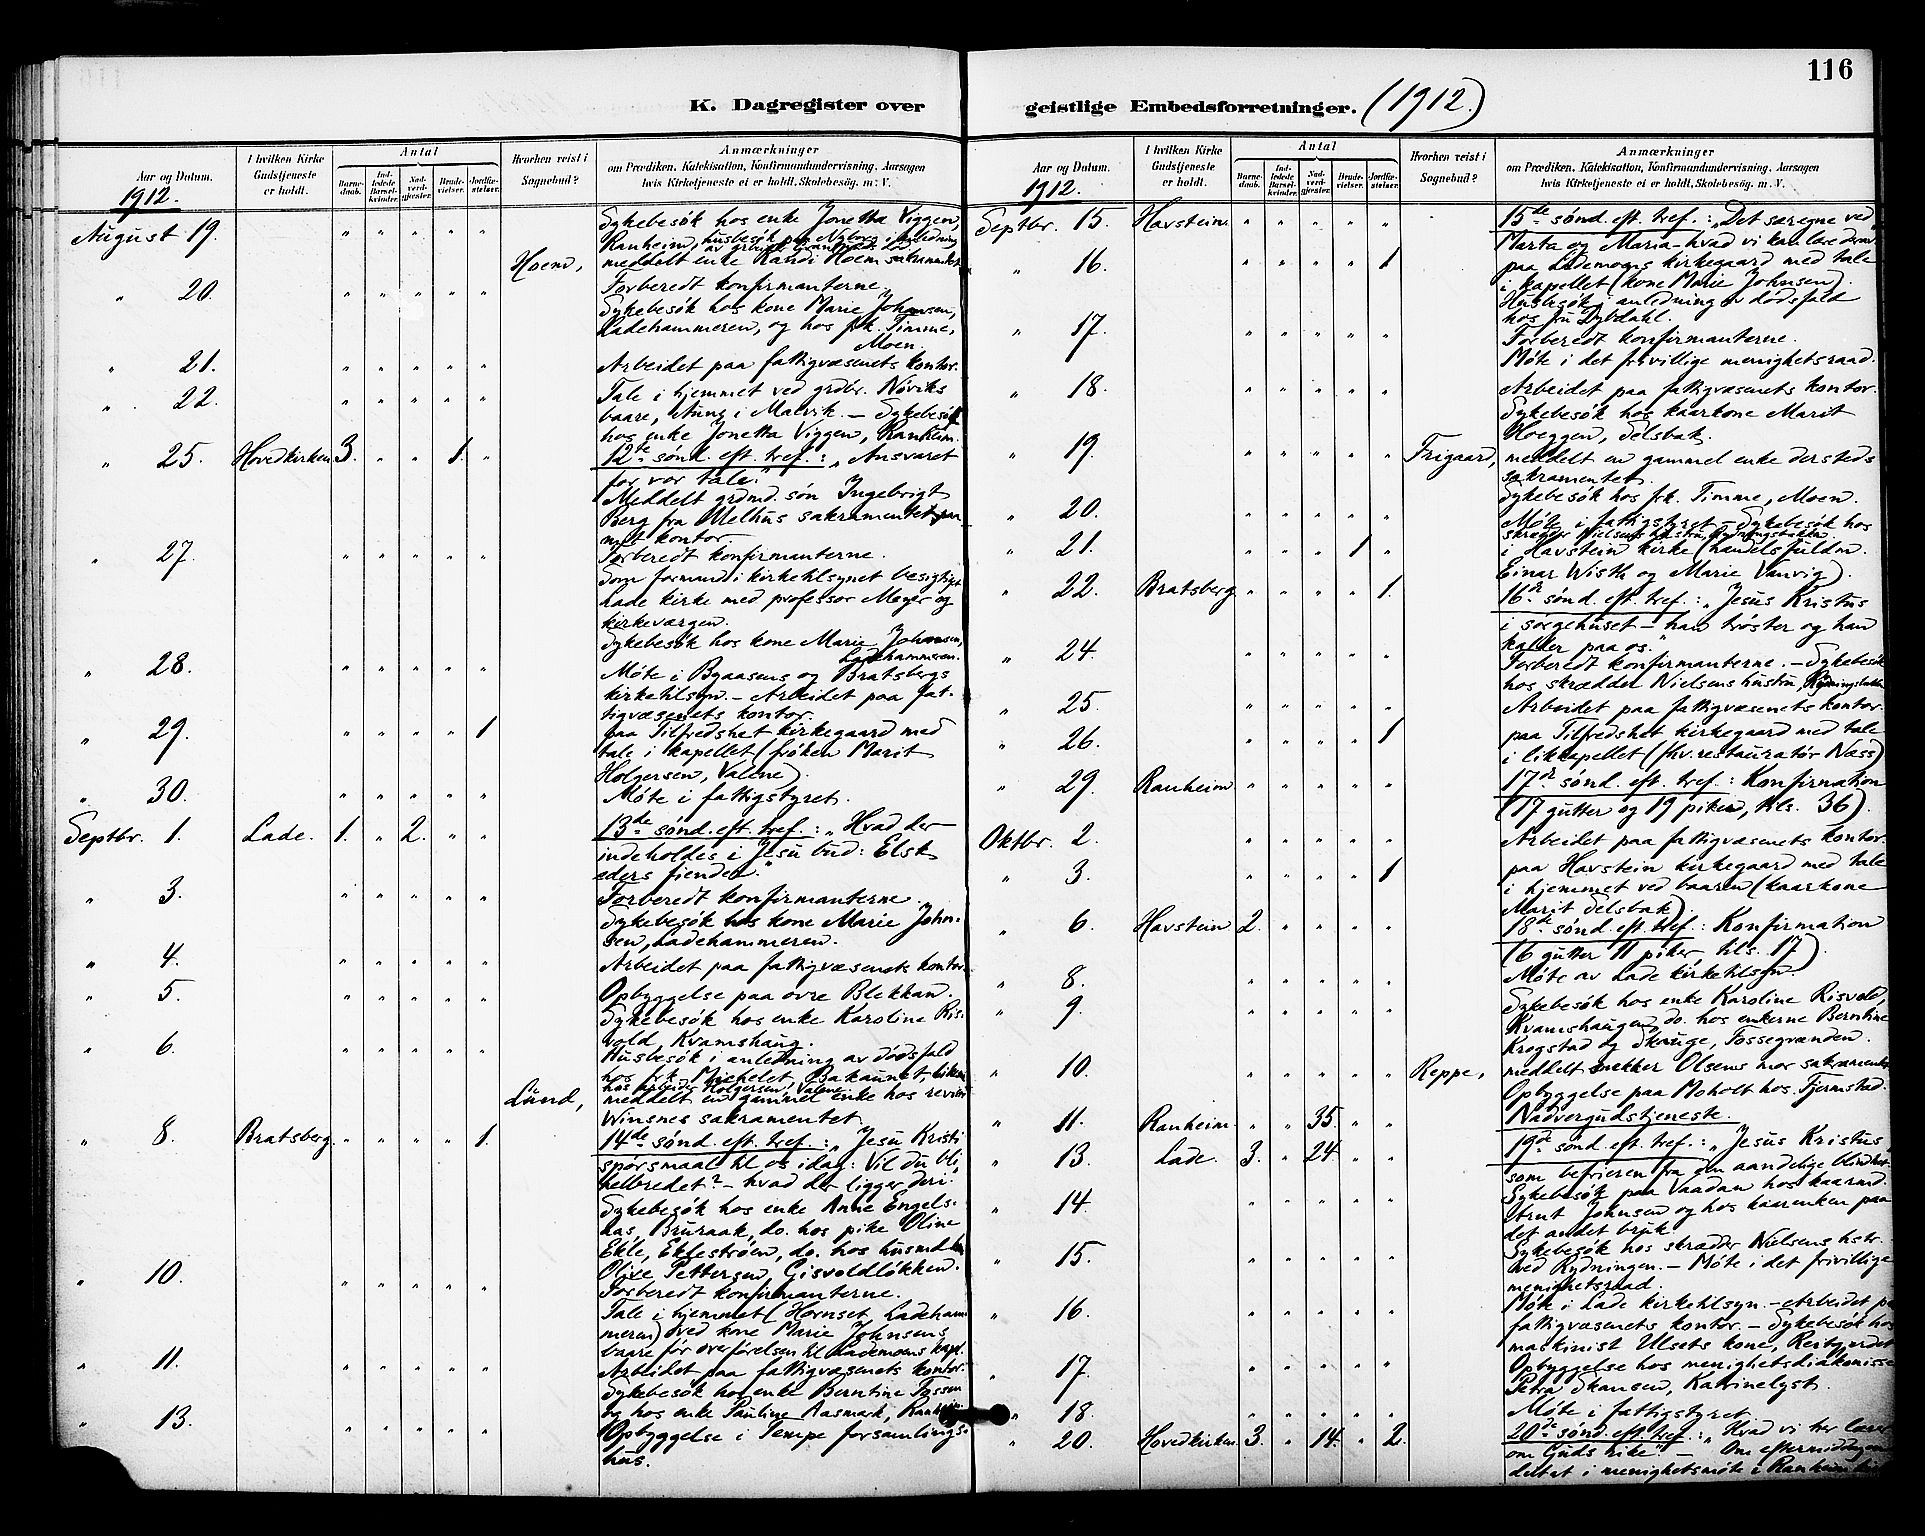 116
K. Dagregister over
geistlige Embedsforretninger. (1912.)
Aar og Datum.
1912.
I hvilken Kirke Gudstjeneste er holdt.
Antal
Barnedaab.
Indledede Barselkvinder.
Nadverdgjester.
Brudevielser.
Jordfæstelser.
Hvorhen reist i Sognebud?
Anmærkninger
om Prædiken, Katekisation, Konfirmandundervisning, Aarsagen
hvis Kirketjeneste ei er holdt, Skolebesøg, m. V.
August 19. " " " " " Sykebesök hos enke Jonetta Viggen,
Ranheim, husbesök paa Nyborg i anledning
Hoem, meddelt enke Randi Hoem sakramentet
" 20. " " " " " Forberedt konfirmanterne.
Sykebesök hos kone Marie Johansen,
Ladehammeren, og hos frk. Timme,
Moen.
" 21. " " " " " Arbeidet paa fattigvæsenets kontor.
" 22. " " " " " Tale i hjemmet ved grdbr. Nøviks
baare, i Malvik. – Sykebesök
hos enke Jonetta Viggen, Ranheim.
" 25. Hovedkirken 3. " " 1. " 12te sönd. eft. tref.: "Ansvaret
for vor tale."
Meddelt grdmd. sön Ingebrigt
Berg fra Melhus sakramentet paa
mit kontor.
" 27. " " " " " Forberedt konfirmanterne.
Som formand i kirketilsynet besigtiget
Lade kirke med professor Meyer og
kirkeværgen.
Sykebesök hos kone Marie Johansen,
Ladehammeren.
" 28. " " " " " Möte i Byaasens og Bratsbergs
kirketilsyn. – Arbeidet paa fat-
tigvæsenets kontor.
" 29. " " " " 1 paa Tilfredshet kirkegaard med
tale i kapellet (fröken Marit
Holgersen, Valene).
" 30. " " " " " Möte i fattigstyret.
Septbr. 1. Lade. 1. " 2. " " 13de sönd. eft. tref.: "Hvad der
indeholdes i Jesu bud: Elsk
eders fiender."
" 3. " " " " " Forberedt konfirmanterne.
Sykebesök hos kone Marie John-
sen, Ladehammeren.
" 4. " " " " " Arbeidet paa fattigvæsenets kontor.
" 5. " " " " " Opbyggelse paa övre Blekkan.
Sykebesök hos enke Karoline Ris-
vold, Kvamshaug.
" 6. " " " " " Husbesök i anledning av dödsfald
hos frk. Michelet, Bakaunet,
hos arbeider Holgersen, Valene.
Lund, meddelt en gammel enke hos revisor
Winsnes sakramentet.
" 8. Bratsberg. " " " " 1. 14de sönd. eft. tref.: "Jesu Kristi
spörsmaal til os idag: Vil du bli
helbredet? – hvad der ligger deri.
Sykebesök hos enke Anne Engels-
aas, Bruraak, do. hos pike Oline
Ekle, Eklestrøen, do. hos husmd.
Olive Pettersen, Gisvoldlökken.
" 10. " " " " " Forberedt konfirmanterne.
Tale i hjemmet (Hornset, Ladeham-
meren) ved kone Marie Johnsens
baare för overförelsen til Lademoens kapl.
" 11. " " " " " Arbeidet paa fattigvæsenets kontor.
Sykebesök hos enke Berntine
og hos enke Pauline Aasmark, Ranheim.
" 13. " " " " " Opbyggelse i Tempe forsamlings-
hus.
Aar og Datum.
1912.
I hvilken Kirke Gudstjeneste er holdt.
Antal
Barnedaab.
Indledede Barselkvinder.
Nadverdgjester.
Brudevielser.
Jordfæstelser.
Hvorhen reist i Sognebud?
Anmærkninger
om Prædiken, Katekisation, Konfirmandundervisning, Aarsagen
hvis Kirketjeneste ei er holdt, Skolebesøg, m. V.
Septbr. 15. Havstein. " " " " " 15de sönd. eft. tref.: "Det særegne ved
Marta og Maria – hvad vi kan lære derav
" 16. " " " " 1 paa Lademoens kirkegaard med tale
i kapellet (kone Marie Johnsen).
Husbesök i anledning av dödsfald
hos fru Dybdahl.
" 17. " " " " " Forberedt konfirmanterne.
Möte i det frivillige menighetsraad.
" 18. " " " " " Arbeidet paa fattigvæsenets kontor.
Sykebesök hos kaarkone Marit
Hoeggen, Selsbak.
" 19. " " " " " Frigaard, meddelt en gammel enke dersteds
sakramentet.
Sykebesök hos frk. Timme, Moen.
" 20. " " " " " Möte i fattigstyret – Sykebesök hos
skrædder Nielsens hustru, Rydningsbakken.
" 21. " " " 1 " i Havstein kirke (handelsfuldm.
Einar Wisth og Marie Vanvig).
" 22. Bratsberg " " " " 1. 16de sönd. eft. tref.: "Jesus Kristus
i sorgehuset – han tröster og han
kalder paa os."
" 24. " " " " " Forberedt konfirmanterne. – Sykebesök
hos skrædder Nielsens hustru, Rydningsbakken
" 25. " " " " " Arbeidet paa fattigvæsenets kontor.
" 26. " " " " 1 paa Tilfredshet kirkegaard med tale
i likkapellet (fhv. restauratör Næss)
" 29. Ranheim. " " " " " 17de sönd. eft. tref.: Konfirmation
(17 gutter og 19 piker, tils. 36).
Oktbr. 2. " " " " " Arbeidet paa fattigvæsenets kontor.
" 3. " " " " 1 paa Havstein kirkegaard med tale
i hjemmet ved baaren (kaarkone
Marit Selsbak).
" 6. Havstein 2. " " " " 18de sönd. eft. tref.: Konfirmation
(6 gutter 11 piker, tils. 17).
" 8. " " " " " Möte av Lade kirketilsyn.
" 9. " " " " " Sykebesök hos enke Karoline Risvold,
Kvamshaugen, do. hos enkerne Berntine
Krogstad og Skauge, Fossegrænden.
" 10. " " " " " Reppe, meddelt snekker Olsens mor sakramentet
Opbyggelse paa Moholt hos Fjermstad.
" 11. Ranheim. " " 35. " " Nadvergudstjeneste.
" 13. Lade. 3. " 24. " " 19de sönd. eft. tref.: "Jesus Kristus
som befrieren fra den aandelige blindhet."
" 14. " " " " " Sykebesök paa Vaadan hos kaarmd.
Arnt Johnsen og hos kaarenken paa
det andet bruk.
" 15. " " " " " Sykebesök hos skrædder Nielsens hstr.
ved Rydningen. – Möte i det frivillige
menighetsraad.
" 16. " " " " " Möte i Lade kirketilsyn. – Arbeidet paa
fattigvæsenets kontor. – Sykebesök hos
maskinist Ulsets kone, Reitgjerdet
" 17. " " " " " Opbyggelse hos menighetsdiakonisse
Petra Skansen, Katrinelyst.
" 18. " " " " " Möte i fattigstyret.
" 20. Hovedkirken 3. " 14. " 2. 20de sönd. eft. tref.: "Hvad vi her lærer
om Guds rike" – Om eftermiddagen
deltat i menighetsmöte i Ranheim